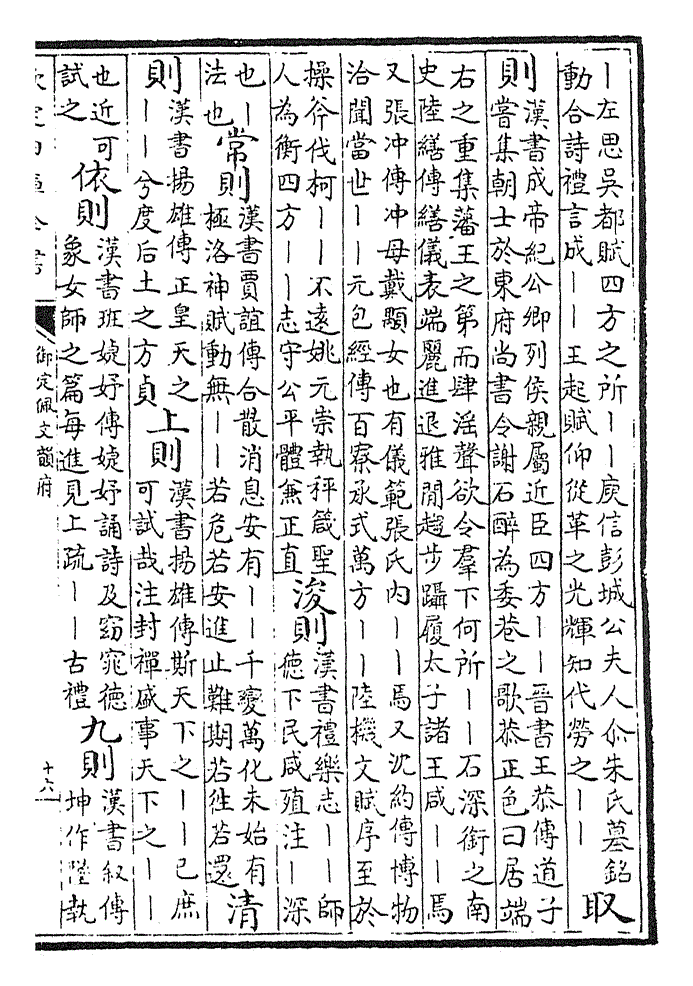 丨左思吳都賦四方之所丨丨庾信彭城公夫人尒朱氏墓銘
動合詩禮言成丨丨王起賦仰從革之光輝知代勞之丨丨
取
則
漢書成帝紀公卿列侯親屬近臣四方丨丨晉書王恭傳道子
嘗集朝士於東府尚書令謝石醉為委巷之歌恭正色曰居端
右之重集藩王之第而肆淫聲欲令羣下何所丨丨石深銜之南
史陸繕傳繕儀表端麗進退雅閒趨步躡履太子諸王咸丨丨焉
又張沖傳沖母戴顒女也有儀範張氏內丨丨焉又沈約傳博物
洽聞當世丨丨元包經傳百寮承式萬方丨丨陸機文賦序至於
操斧伐柯丨丨不遠姚元崇執秤箴聖
人為衡四方丨丨志守公平體兼正直
浚則
漢書禮樂志丨丨師
德下民咸殖注丨深
也丨
法也
常則
漢書賈誼傳合散消息安有丨丨千變萬化未始有
極洛神賦動無丨丨若危若安進止難期若往若還
清
則
漢書揚雄傳正皇天之
丨丨兮度后土之方貞
上則
漢書揚雄傳斯天下之丨丨已庶
可試哉注封禪盛事天下之丨丨
也近可
試之
依則
漢書班婕妤傳婕妤誦詩及窈窕德
象女師之篇每進見上疏丨丨古禮
九則
漢書叙傳
坤作墬埶
欽定四庫全書
御定佩文韻府
十六